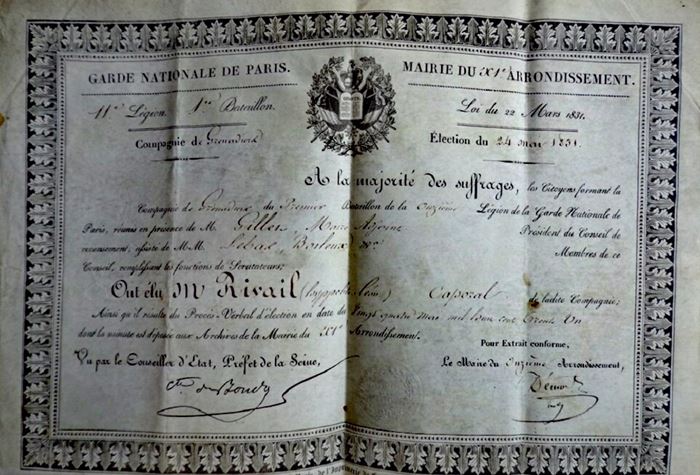 GARDE NATIONALE DE PARIS.
MAIRIE DU XIe ARRONDISSEMENT.
11e Légion. 1er Bataillon.
Loi du 22 Mars 1831.
Compagnie de Grenadiers
Élection du 24 mai 1831.
A la majorité des suffrages, les Citoyens formant la
Compagnie de Grenadiers du Premier Bataillon de la onzième Légion de la Garde Nationale de
Paris, réunis en présence de M. Gilles, Maire Adjoint Président du Conseil de
recensement, assisté de M.M. Membres de ce
Conseil, remplissant les fonctions de Scrutateurs;
Ont élu M Rivail (hyppolite Léon) Caporal de ladite Compagnie;
Ainsi qu'il résulte du Procès-Verbal d'élection en date du Vingt quatre Mai mil huit cent trente Un
dont la minute est déposée aux Archives de la Mairie du XIe Arrondissement.
Pour Extrait conforme,
Vu par le Conseiller d'État, Préfet de la Seine,
Le Maire du Onzième Arrondissement,
Cte de Bondy